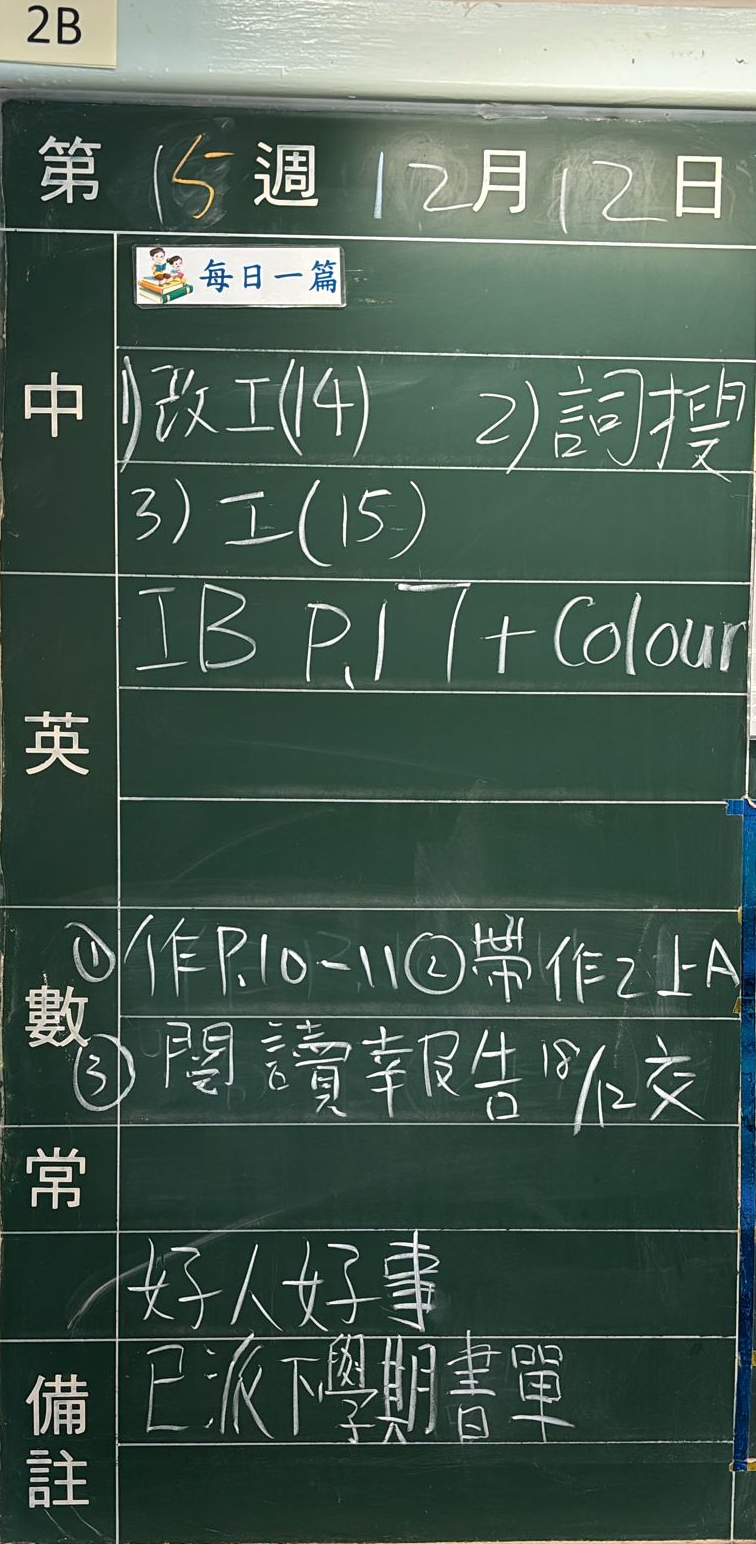 2B
第 15 週 12月12日
每日一篇
中
1)改工(14) 2)詞搜
3)工(15)
英
IB P.17+Colour
數
①作P.10-11②帶作2上A
③閱讀報告18/12交
常
好人好事
備註
已派下學期書單